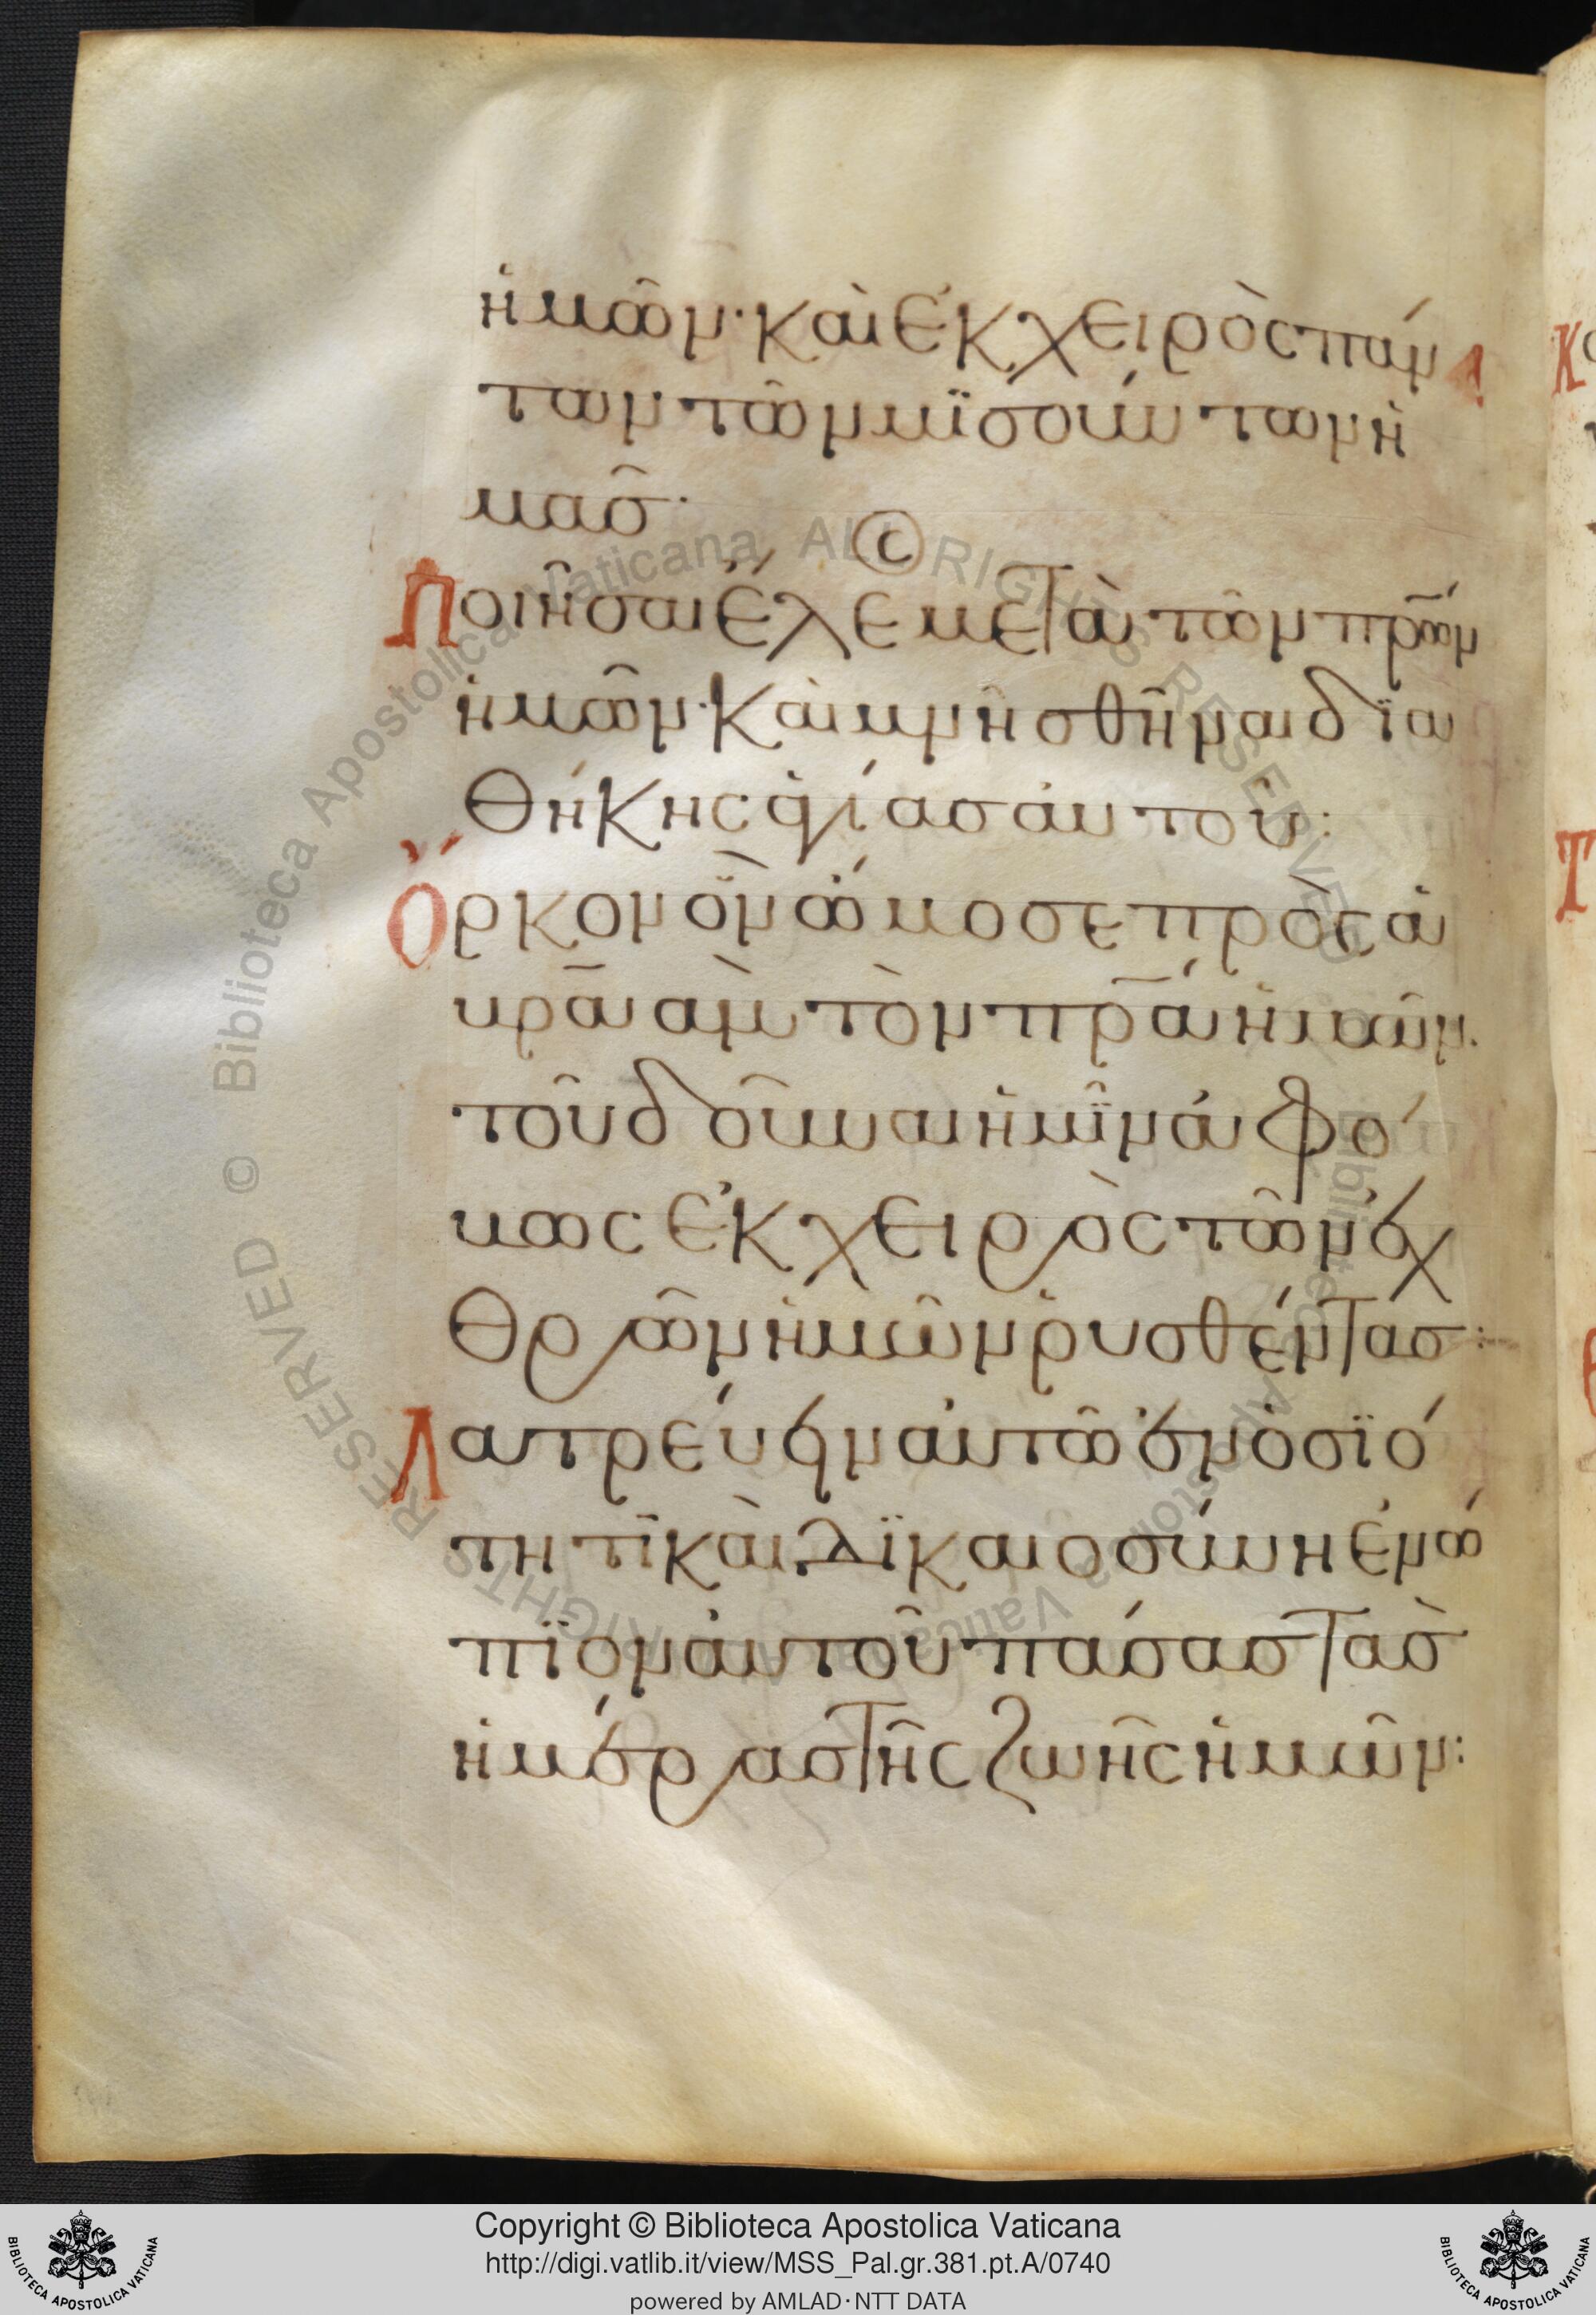 ἡμῶν· καὶ ἐκ χειρὸς πάν
των τῶν μϊσούν των ἡ
μᾶσ·
Ποιῆσαι ἔλε μετὰ τῶν πρ̅ων
ἡμῶν· Καὶ μνησθῆναι δϊα
θήκης ἁγίασ αὐτοῦ:
Ὅρκον ὃν ὤμοσε πρὸς ἀ
βρα̅αμ τὸν πρ̅α ἡμῶν.
τοῦ δοῦναι ἡμῖν ἀφό
βως ἐκ χειρὸς τῶν ἐχ
θρῶν ἡμῶν ῥυσθέντασ:
Λατρεύειν αὐτῶ ἐν ὁσϊό
τητι καὶ δϊκαιοσύνη ἐνώ
πϊον αὐτοῦ πάσασ τὰσ
ἡμέρασ τῆς ζωῆς ἡμῶν:
© Biblioteca Apostolica Vaticana ALL RIGHTS RESERVED
Copyright © Biblioteca Apostolica Vaticana
http://digi.vatlib.it/view/MSS_Pal.gr.381.pt.A/0740
powered by AMLAD·NTT DATA
BIBLIOTECA APOSTOLICA VATICANA
BIBLIOTECA APOSTOLICA VATICANA